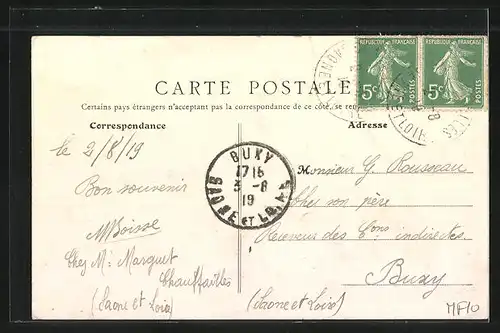 REPUBLIQUE FRANÇAISE
5c
5c
CARTE POSTALE
Certains pays étrangers n'acceptent pas la correspondance de ce côté, se
Correspondance
Adresse
le 2/8/19
Bon souvenir
Chez Mr Marguet
Chauffailles
(Saone et Loire)
BUXY
17 15
3 -8
19
SAONE ET LOIRE
Monsieur G. Rousseau
Chez son père
Receveur des Cons indirectes.
Buxy
(Saone et Loire)
MF10